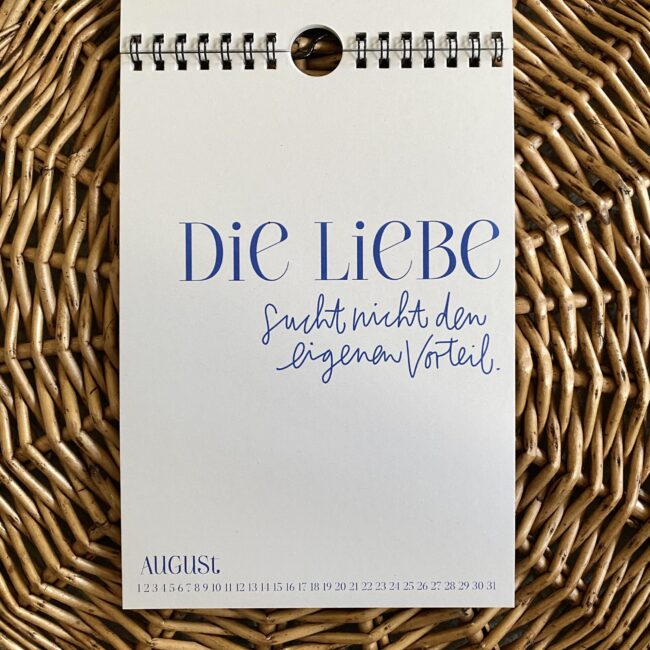 Die Liebe
sucht nicht den
eigenen Vorteil.
August.
1 2 3 4 5 6 7 8 9 10 11 12 13 14 15 16 17 18 19 20 21 22 23 24 25 26 27 28 29 30 31